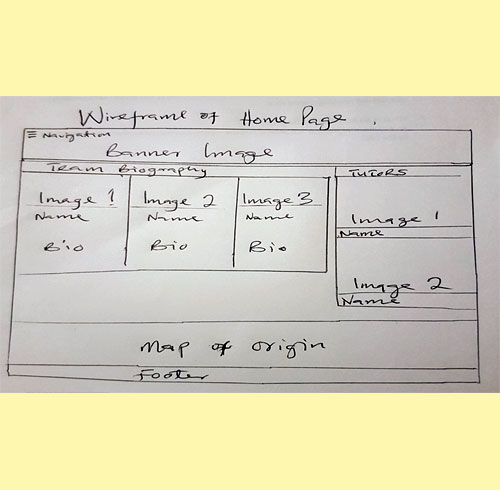 Wireframe of Home Page .
≡ Navigation
Banner Image
Team Biography
Image 1
Name
Bio
Image 2
Name
Bio
Image 3
Name
Bio
TUTORS
Image 1
Name
Image 2
Name
Map of Origin
Footer